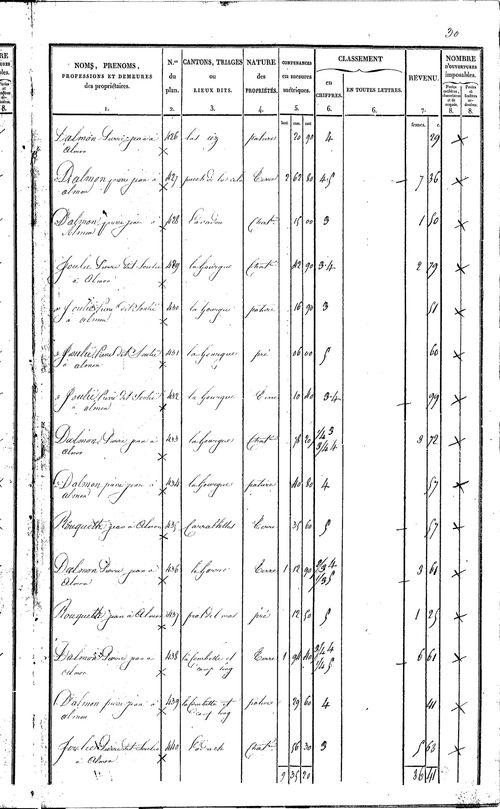 30
NOMS, PRENOMS, PROFESSIONS ET DEMEURES des propriétaires. 1.
N.os du plan. 2.
CANTONS, TRIAGES OU LIEUX DITS. 3.
NATURE des PROPRIÉTÉS. 4.
CONTENANCES en mesures métriques. 5.
CLASSEMENT
en CHIFFRES. 6.
EN TOUTES LETTRES. 6.
REVENU. 7.
NOMBRE D'OUVERTURES imposables.
8. 8.
francs. c.
Dalmon Pierre jean à almon 426 pature 20 90 4 29
Dalmon pierre jean à almon 427 Terre 2 62 80 4 5 7 36
Dalmon pierre jean à Almon 428 Chat. 15 00 3 1 50
Joulié Pierre dit Soulié à almon 429 la Gourgue Chat. 42 90 3.4 2 79
Joulié Pierre dit Soulié à almon 430 la Gourgue pature 16 90 3 51
Joulié Pierre dit Soulié à almon 431 la Gourgue pré 06 00 5 60
Joulié Pierre dit Soulié à almon 432 la Gourgue Terre 10 40 3.4 99
Dalmon Pierre jean à almon 433 la Gourgue Chat. 78 20 1/4 3 3/4 4 3 72
Dalmon pierre jean à almon 434 la Gourgue pature 40 80 4 57
Rouquette jean à Almon 435 Carralhettes Terre 35 60 5 57
Dalmon Pierre jean à Almon 436 Terre 1 12 90 2/3 4 1/3 5 3 61
Rouquette jean à Almon 437 prat del mas pré 12 50 5 1 25
Dalmon Pierre jean à almon 438 la Combette et camp long Terre 1 94 40 3/4 4 1/4 5 6 61
Dalmon pierre jean à almon 439 la Combette et camp long pature 29 60 4 41
Joulié Pierre dit Soulié à Almon 440 Chat. 56 30 3 5 63
9 35 20 36 41